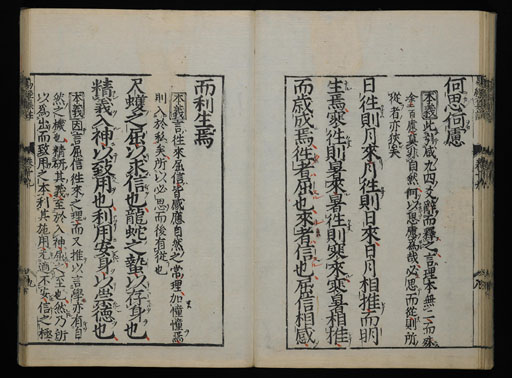 何思何慮
本義此引咸九四爻辭而釋之言理本無二而殊
塗百慮莫非自然何以思慮爲哉必思而從則所
從者亦狹矣
日往則月來月往則日來日月相推而明
生焉寒往則暑來暑往則寒來寒暑相推
而歲成焉往者屈也來者信也屈信相感
而利生焉
本義言往來屈信皆感應自然之常理加憧憧焉
則入於私矣所以必思而後有從也
尺蠖之屈以求信也龍蛇之蟄以存身也
精義入神以致用也利用安身以崇德也
本義因言屈信往來之理而又推以言學亦有自
然之機也精研其義至於入神屈之至也然乃所
以爲出而致用之本利其施用无適不安信之極